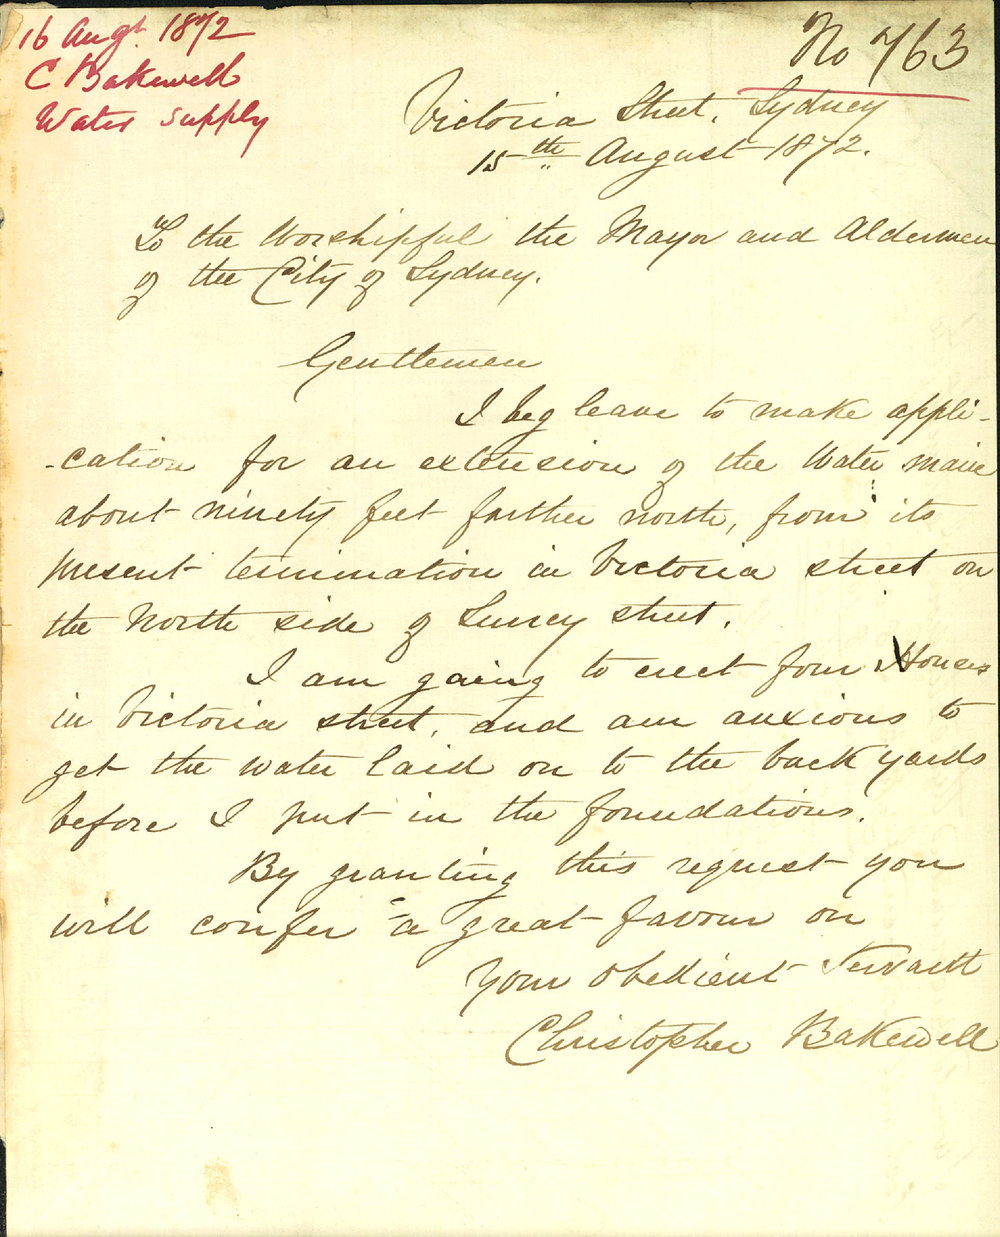 16 Augt 1872
C Bakewell
Water Supply
No 763
Victoria Street, Sydney
15th August 1872.
To the Worshipful the Mayor and Aldermen
of the City of Sydney.
Gentlemen
I beg leave to make appli-
-cation for an extension of the Water main
about ninety feet farther north, from its
present termination in Victoria street on
the North side of Surrey street.
I am going to erect four Houses
in Victoria street, and am anxious to
get the water laid on to the back yards
before I put in the foundations.
By granting this request you
will confer a great favour on
Your obedient Servant
Christopher Bakewell